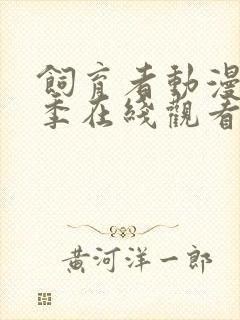 飼育者動漫
季在綫觀看
黃河洋一郎